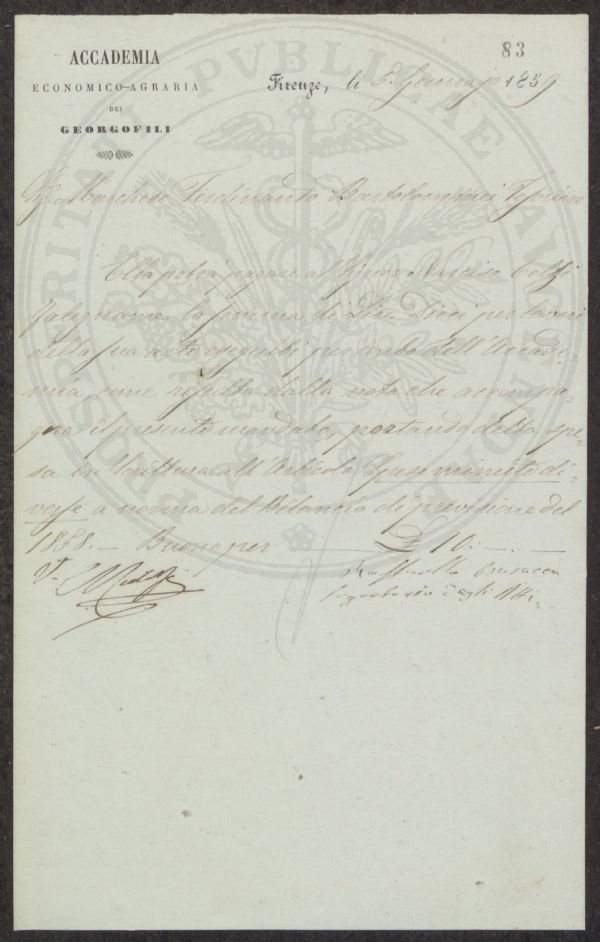 83
ACCADEMIA
ECONOMICO-AGRARIA
DEI
GEORGOFILI
Firenze, li 5. Gennajo 1859
Sig. Marchese Ferdinando Bartolommei Tesoriere
Ella potrà pagare al Signor Narciso
falegname la somma di Lire Dieci per lavori
della sua arte eseguiti per conto dell'Accade-
mia, come risulta dalla nota che accompa-
gna il presente mandato, portando detta spe-
sa in Scrittura all'Articolo Spese minute di-
verse a norma del Bilancio di previsione del
1858. — Buono per £ 10. —
V.
Raffaello Busacca
Segretario degli Atti
PROSPERITATI PVBLICAE AVGENDAE